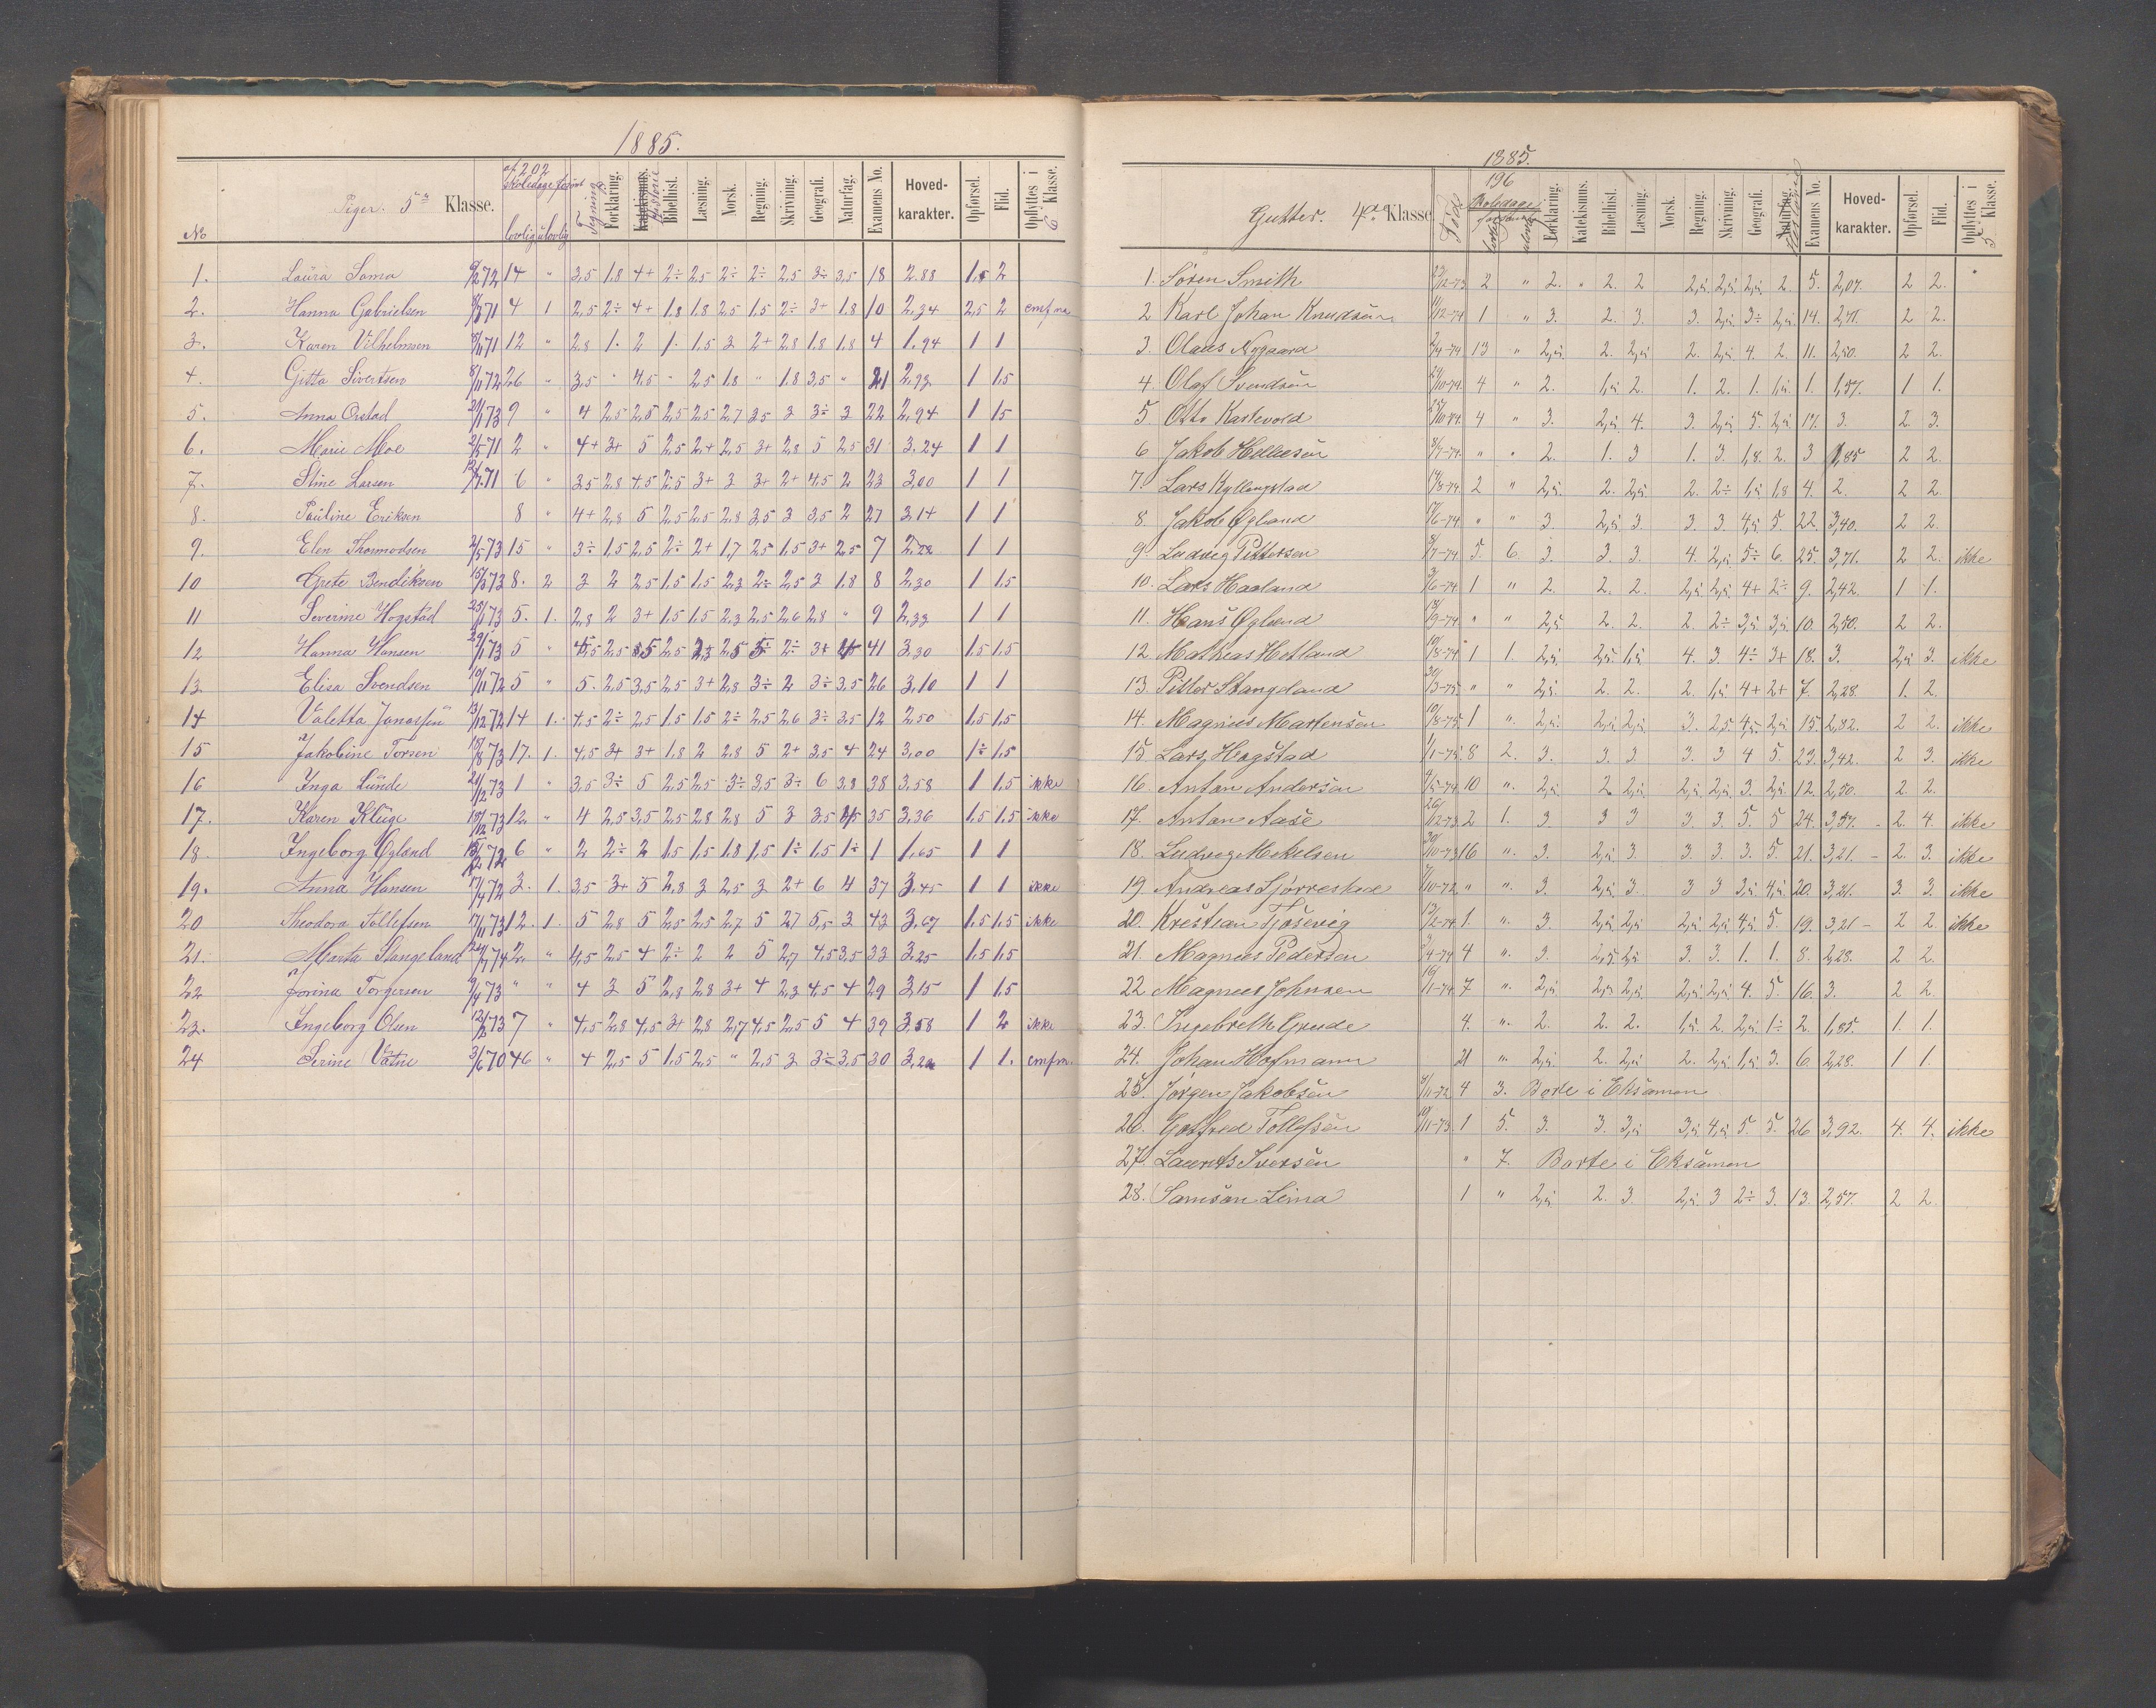 1885.
Piger. 5te Klasse.
No
af 202 skoledage forsømt
lovlig ulovlig
Tegning Forklaring. Katekismus. Historie Bibelhist. Læsning. Norsk. Regning. Skrivning. Geografi. Naturfag. Examens No. Hoved-karakter. Opførsel. Flid. Opflyttes i 6 Klasse.
1. Laura Soma 72 14 " 3,5 1.8 4+ 2÷ 2,5 2÷ 2÷ 2,5 3÷ 3,5 18 2.88 1,5 2
2. Hanna Gabrielsen 71 4 1 2,5 2÷ 4+ 1.8 1.8 2,5 1.5 2÷ 3+ 1.8 10 2,34 2,5 2
3. Karen Vilhelmsen 71 12 " 2,8 1. 2 1. 1,5 3 2+ 2,8 1.8 1.8 4 1.94 1 1
4. Gitta Sivertsen 8/11 72 26 " 3,5 " 4,5 - 2,5 1.8 " 1.8 3,5 " 21 2,93 1 1,5
5. Anna Orstad 73 9 " 4 2,5 2,5 2,5 2,5 2,7 3,5 3 3÷ 3 22 2,94 1 1,5
6. Marie Moe 2/5 71 2 " 4+ 3+ 5 2,5 2+ 2,5 3+ 2,8 5 2,5 31 3.24 1 1
7. Stine Larsen 71 6 " 3,5 2,8 4,5 2,5 3+ 3 3+ 2+ 4,5 2 23 3,00 1 1
8. Pauline Eriksen 8 " 4+ 2,8 5 2,5 2,5 2,8 3,5 3 3,5 2 27 3,14 1 1
9. Elen Thormodsen 2/5 73 15 " 3÷ 1,5 2,5 2÷ 2+ 1,7 2,5 1,5 3+ 2,5 7 1 1
10 Grete Bendiksen 73 8. 2 3 2 2,5 1,5 1,5 2,3 2÷ 2,5 3 1.8 8 2,30 1 1,5
11 Severine Hogstad 73 5. 1. 2,8 2 3+ 1,5 1,5 2,3 2,5 2,6 2,8 " 9 2,33 1 1
12 Hanna Hansen 29/1 73 5 " 4,5 2,5 5 2,5 2,3 2,5 5÷ 2÷ 3+ 4 41 3.30 1.5 1.5
13. Elisa Svendsen 10/11 72 5 " 5. 2,5 3,5 2,5 3+ 2,8 3÷ 2 3÷ 3,5 26 3,10 1 1
14 Valetta Jonassen 13/12 72 14 1. 4,5 2÷ 2,5 1,5 1,5 2÷ 2,5 2,6 3÷ 3,5 12 2,50 1,5 1,5
15 Jakobine Torsen 73 17. 1. 4,5 3+ 3+ 1.8 2 2,8 5 2+ 3,5 4 24 3,00 1÷ 1,5
16 Inga Lunde 73 1 " 3,5 3÷ 5 2,5 2,5 3÷ 3,5 3÷ 6 3,8 38 3.58 1 1,5 ikke
17. Karen Kluge 73 12. " 4 2,5 3,5 2,5 2,8 2,8 5 3 3,5 4,5 35 3,36 1,5 1,5 ikke
18 Ingeborg Øgland 72 6 " 2 2÷ 2 1,5 1,5 1.8 1,5 1÷ 1,5 1÷ 1 1.65 1 1
19. Anna Hansen 72 3. 1. 3,5 3+ 5 2,8 3 2,5 3 2+ 6 4 37 3,45 1 1 ikke
20 Theodora Tollefsen 17/11 73 12. 1. 5 2,8 5 2,5 2,5 2,7 5 2,7 5,5 3 43 3,67 1,5 1,5 ikke
21. Marta Stangeland 74 2. " 4,5 2,5 4 2÷ 2 2 5 2,7 4,5 3,5 33 3,25 1,5 1,5
22 Jorina Torgersen 9/4 73 " " 4 3 5 2,8 2,8 3+ 4 2,3 4,5 4 29 3,15 1 1,5
23. Ingeborg Olsen 73 7 " 4,5 2,8 4,5 3+ 2,8 2,7 4,5 2,5 5 4 39 3,58 1 2 ikke
24 Serine Vatne 3/6 70 46 " 4 2,5 5 1,5 2,5 " 2,5 3 3÷ 3,5 30 1 1.
1885.
Gutter. 4de Klasse.
Född 196 Skoledage forsømt
Forklaring. Katekismus. Bibelhist. Læsning. Norsk. Regning. Skrivning. Geografi. Naturfag. Examens No. Hoved-karakter. Opførsel. Flid. Opflyttes i 5 Klasse.
1. Søren Smith 23/12-73 2 " 2. " 2. 2 2,5. 2,5. 2,5. 2. 5. 2,07. 2 2.
2 Karl Johan Knudsen 11/12-74 1 " 3. 2. 3. 3. 2,5. 3÷ 2,5. 14. 2,71. 2 2.
3. Olaus Nygaard 2/4-74 13 " 2,5. 2. 2,5. 2. 2,5. 4. 2. 11. 2,50. 2 2.
4. Olaf Svendsen 29/10-74. 4 " 2. 1,5 2. 1. 2. 1. 1,5. 1. 1,57. 1 1.
5 Otto Kartevold 25/10-74. 4 " 3. 2,5. 4. 3. 2,5. 5. 2,5. 17. 3. 2. 3.
6 Jakob Hellesen 3/7-74. " " 2. 1. 3 1. 3. 1,8. 2. 3 1,85 2 2.
7. Lars Kyllingstad 14/3-74. 2 " 2,5. 2. 2,5. 2. 2÷ 1,5 1,8 4. 2. 2 2.
8. Jakob Øgland 5/6-74 " " 3. 2,5. 3. 3. 3. 4,5. 5. 22. 3,40. 2 2.
9. Ludvig Pettersen 8/7-74 5. 6. 3. 3. 3. 4. 2,5. 5÷ 6. 25. 3,71. 2 2. ikke
10. Lars Haaland 3/6-74 1 " 2. 2. 2. 2,5. 2,5. 4+ 2÷ 9. 2,42. 1 1.
11. Hans Øgland 13/9-74 " " 2,5. 2. 2. 2. 2÷ 3,5. 3,5. 10. 2,50. 2 2.
12 Mathias Hetland 10/8-74 1 1. 2,5. 2,5. 1,5. 4. 3. 4÷ 3+ 18. 3. 2,5 3. ikke
13. Petter Stangeland 30/3-75 " " 2,5. 2. 2. 2. 1,5. 4+ 2+ 7. 2,28. 1. 2.
14. Magnus Martensen 10/8-75 1 " 2,5. 2,5. 2,5. 3. 2,5. 4,5. 2,5. 15. 2,82. 2 2. ikke
15. Lars Hogstad 1/1-75 8 2. 3. 3. 3. 3. 3 4 5. 23. 3,42. 2 3. ikke
16. Anton Andersen 9/5-74 10 ". 2,5. 2. 2,5. 2,5. 2,5. 3. 2,5. 12. 2,50. 2. 2.
17. Anton Aase 26/12-73 2 1. 3. 3 3 3. 3. 5. 5 24. 3,57. - 2. 4. ikke
18. Ludvig Mekelsen 30/10-73 16 ". 3. 2,5 3. 3. 3. 3. 5. 21. 3,21. - 2. 3. ikke
19 Andreas Sjørrestad 7/10-72. " ". 3. 2,5. 3. 3 3 3,5. 4,5. 20. 3,21. 3. 3. ikke
20. Krestian Tjøsevig 13/12-74 1. ". 3. 2,5. 2,5. 2,5. 2,5. 4,5. 5. 19. 3,21 - 2 2. ikke
21. Magnus Pedersen 9/4-74 4 ". 3. 2,5. 2,5. 3. 3. 1. 1. 8. 2,28. 2 2.
22. Magnus Johnsen 19/1-74 7 ". 2,5. 2,5. 2,5. 2,5. 2,5. 4. 5 16. 3. 2 2.
23. Ingebreth Grude 4. ". 2. 2. 2. 1,5. 2. 2,5. 1÷ 2. 1,85. 1. 1.
24. Johan Hofmann 21 ". 2,5. 2. 2,5. 2. 2,5. 1,5. 3. 6. 2,28. 1 1.
25. Jørgen Jakobsen 9/11-72 4 3. Borte i Eksamen
26. Gotfred Tollefsen 10/11-73. 1 5. 3. 3. 3,5 3,5. 4,5. 5. 5. 26 3,92. 4. 4. ikke
27. Laurits Iversen " 7. Borte i Eksamen
28. Samson Lima 1 " 2,5. 2. 3. 2,5. 3 2÷ 3. 13. 2,57. 2 2.